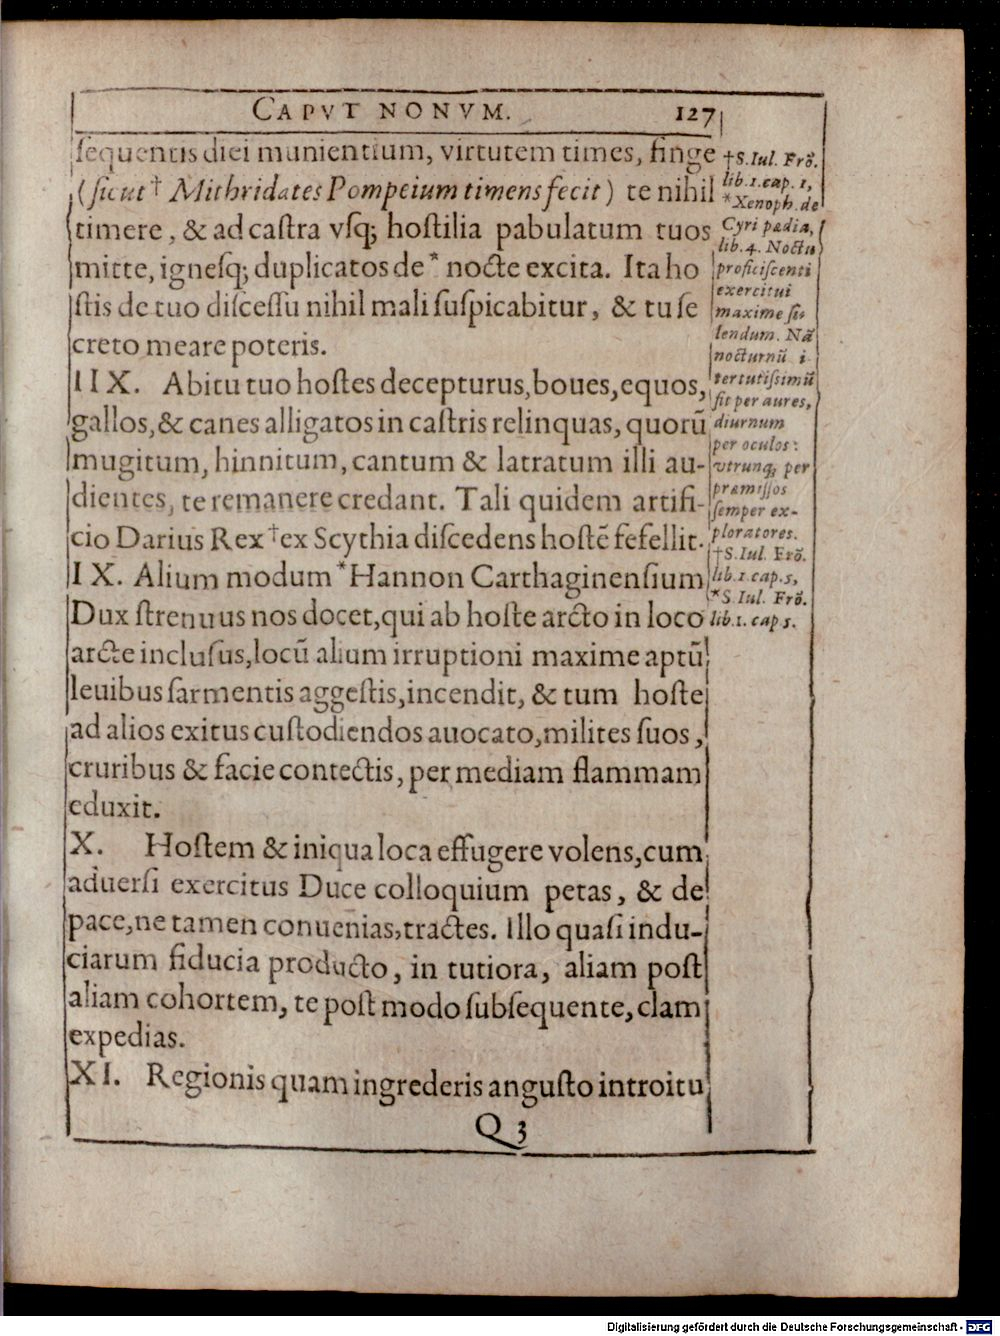 CAPVT NONVM. 127
ſequentis diei munientium, virtutem times, finge
(ſicut† Mithridates Pompeium timens fecit) te nihil
timere, & ad caſtra vſq; hoſtilia pabulatum tuos
mitte, igneſq; duplicatos de* nocte excita. Ita ho
ſtis de tuo diſceſſu nihil mali ſuſpicabitur, & tu ſe
creto meare poteris.
IIX. Abitu tuo hoſtes decepturus, boues, equos,
gallos, & canes alligatos in caſtris relinquas, quorũ
mugitum, hinnitum, cantum & latratum illi au-
dientes, te remanere credant. Tali quidem artifi-
cio Darius Rex† ex Scythia diſcedens hoſtẽ fefellit.
IX. Alium modum *Hannon Carthaginenſium
Dux ſtrenuus nos docet, qui ab hoſte arcto in loco
arcte incluſus, locũ alium irruptioni maxime aptũ
leuibus ſarmentis aggeſtis, incendit, & tum hoſte
ad alios exitus cuſtodiendos auocato, milites ſuos,
cruribus & facie contectis, per mediam flammam
eduxit.
X. Hoſtem & iniqua loca effugere volens, cum
aduerſi exercitus Duce colloquium petas, & de
pace, ne tamen conuenias, tractes. Illo quaſi indu-
ciarum fiducia producto, in tutiora, aliam poſt
aliam cohortem, te poſt modo ſubſequente, clam
expedias.
XI. Regionis quam ingrederis anguſto introitu
Q 3
†S. Iul. Frõ.
lib. 1. cap. 1,
*Xenoph. de
Cyri pædia,
lib. 4. Noctu
proficiſcenti
exercitui
maxime ſi-
lendum. Nã
nocturnũ i-
ter tutiſſimũ
ſit per aures,
diurnum
per oculos:
vtrunq; per
præmiſſos
ſemper ex-
ploratores.
†S. Iul. Frõ.
lib. 1 cap. 5,
*S. Iul. Frõ.
lib. 1. cap 5.
Digitalisierung gefördert durch die Deutsche Forschungsgemeinschaft - DFG